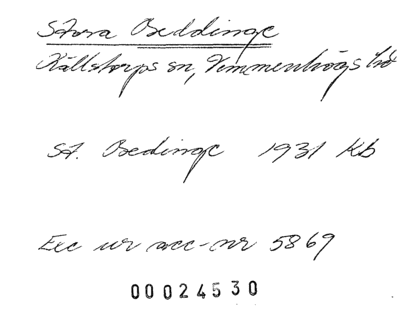 Stora Beddinge
Källstorps sn, Vemmenhögs hd
St. Bedinge 1931 Kb
Exc ur acc-nr 5869
00024530